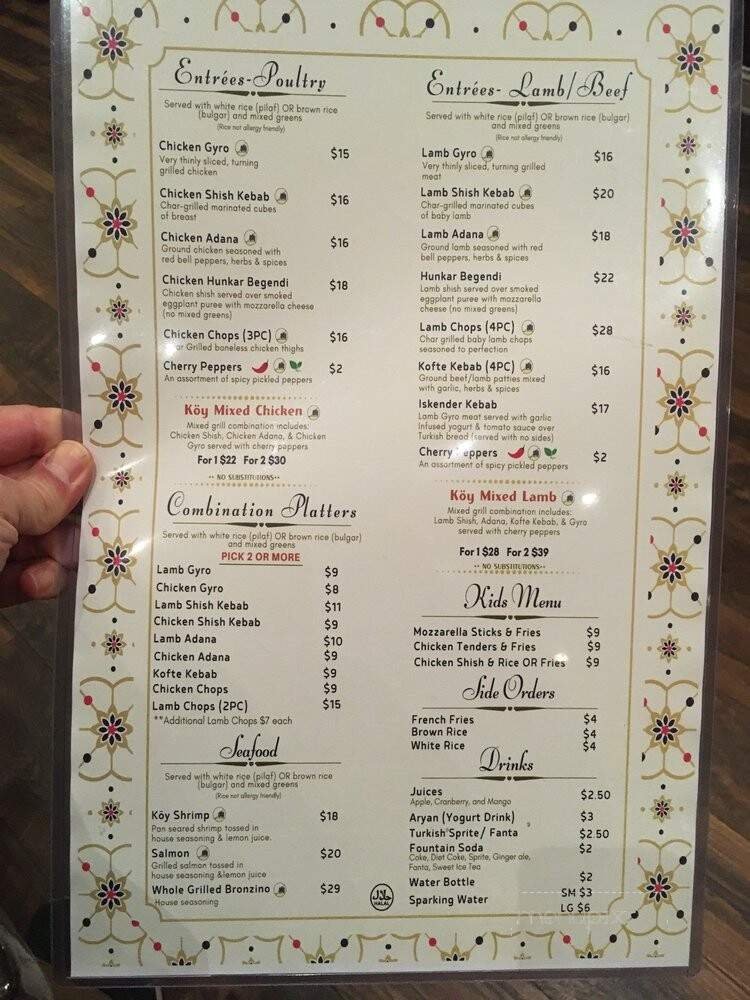 Entrées-Poultry
Served with white rice (pilaf) OR brown rice
(bulgar) and mixed greens
(Rice not allergy friendly)
Chicken Gyro $15
Very thinly sliced, turning
grilled chicken
Chicken Shish Kebab $16
Char-grilled marinated cubes
of breast
Chicken Adana $16
Ground chicken seasoned with
red bell peppers, herbs & spices
Chicken Hunkar Begendi $18
Chicken shish served over smoked
eggplant puree with mozzarella cheese
(no mixed greens)
Chicken Chops (3PC) $16
Char Grilled boneless chicken thighs
Cherry Peppers $2
An assortment of spicy pickled peppers
Köy Mixed Chicken
Mixed grill combination includes:
Chicken Shish, Chicken Adana, & Chicken
Gyro served with cherry peppers
For 1 $22 For 2 $30
** NO SUBSTITUTIONS**
Combination Platters
Served with white rice (pilaf) OR brown rice (bulgar)
and mixed greens
PICK 2 OR MORE
Lamb Gyro $9
Chicken Gyro $8
Lamb Shish Kebab $11
Chicken Shish Kebab $9
Lamb Adana $10
Chicken Adana $9
Kofte Kebab $9
Chicken Chops $9
Lamb Chops (2PC) $15
**Additional Lamb Chops $7 each
Seafood
Served with white rice (pilaf) OR brown rice
(bulgar) and mixed greens
(Rice not allergy friendly)
Köy Shrimp $18
Pan seared shrimp tossed in
house seasoning & lemon juice.
Salmon $20
Grilled salmon tossed in
house seasoning &lemon juice
Whole Grilled Bronzino $29
House seasoning
Entrées- Lamb/Beef
Served with white rice (pilaf) OR brown rice (bulgar)
and mixed greens
(Rice not allergy friendly)
Lamb Gyro $16
Very thinly sliced, turning grilled
meat
Lamb Shish Kebab $20
Char-grilled marinated cubes
of baby lamb
Lamb Adana $18
Ground lamb seasoned with red
bell peppers, herbs & spices
Hunkar Begendi $22
Lamb shish served over smoked
eggplant puree with mozzarella
cheese (no mixed greens)
Lamb Chops (4PC) $28
Char grilled baby lamb chops
seasoned to perfection
Kofte Kebab (4PC) $16
Ground beef/lamb patties mixed
with garlic, herbs & spices
Iskender Kebab $17
Lamb Gyro meat served with garlic
Infused yogurt & tomato sauce over
Turkish bread (served with no sides)
Cherry Peppers $2
An assortment of spicy pickled peppers
Köy Mixed Lamb
Mixed grill combination includes:
Lamb Shish, Adana, Kofte Kebab, & Gyro
served with cherry peppers
For 1 $28 For 2 $39
** NO SUBSTITUTIONS**
Kids Menu
Mozzarella Sticks & Fries $9
Chicken Tenders & Fries $9
Chicken Shish & Rice OR Fries $9
Side Orders
French Fries $4
Brown Rice $4
White Rice $4
Drinks
Juices $2.50
Apple, Cranberry, and Mango
Aryan (Yogurt Drink) $3
Turkish Sprite/ Fanta $2.50
Fountain Soda $2
Coke, Diet Coke, Sprite, Ginger ale,
Fanta, Sweet Ice Tea
Water Bottle $2
Sparking Water SM $3
LG $6
حلال
HALAL